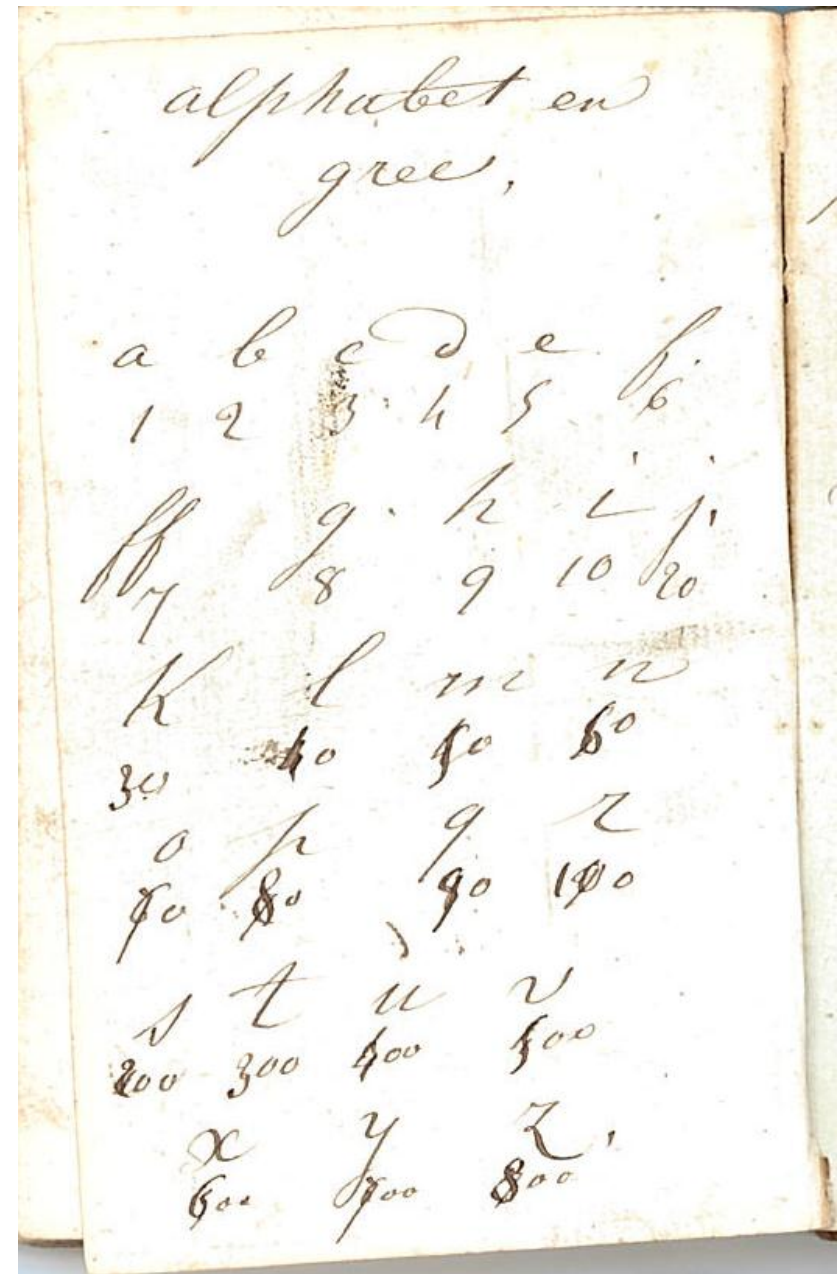 alphabet en
grec,
a b c d e f.
1 2 3 4 5 6
ff g h i j
7 8 9 10 20
K l m n
30 40 50 60
o p q r
70 80 90 100
s t u v
200 300 400 500
x y z,
600 700 800